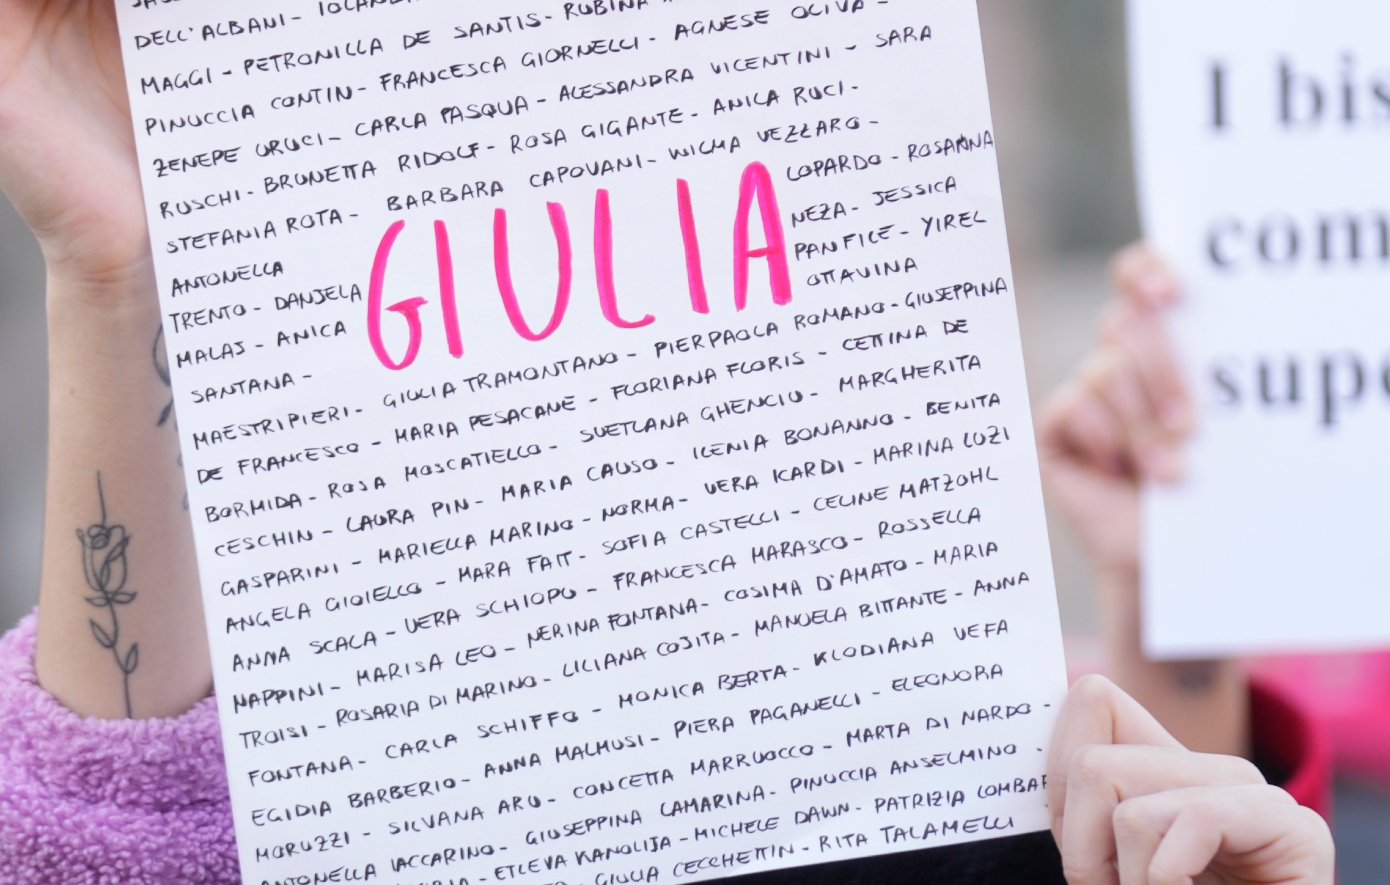 DELL'ALBANI -
MAGGI - PETRONILLA DE SANTIS - RUBINA
PINUCCIA CONTIN - FRANCESCA GIORNELLI - AGNESE OLIVA -
ZENEPE URUCI - CARLA PASQUA - ALESSANDRA VICENTINI - SARA
RUSCHI - BRUNETTA RIDOLF - ROSA GIGANTE - ANILA RUCI -
STEFANIA ROTA - BARBARA CAPOVANI - WILMA VEZZARO -
ANTONELLA LOPARDO - ROSANNA
TRENTO - DANJELA NEZA - JESSICA
MALAJ - ANICA PANFILE - YIREL
SANTANA - OTTAVINA
GIULIA
MAESTRIPIERI - GIULIA TRAMONTANO - PIERPAOLA ROMANO - GIUSEPPINA
DE FRANCESCO - MARIA PESACANE - FLORIANA FLORIS - CETTINA DE
BORMIDA - ROSA MOSCATIELLO - SVETLANA GHENCIU - MARGHERITA
CESCHIN - LAURA PIN - MARIA CAUSO - ILENIA BONANNO - BENITA
GASPARINI - MARIELLA MARINO - NORMA - VERA ICARDI - MARINA LUZI
ANGELA GIOIELLO - MARA FAIT - SOFIA CASTELLI - CELINE MATZOHL
ANNA SCALA - VERA SCHIOPU - FRANCESCA MARASCO - ROSSELLA
NAPPINI - MARISA LEO - NERINA FONTANA - COSIMA D'AMATO - MARIA
TROISI - ROSARIA DI MARINO - LILIANA COJITA - MANUELA BITTANTE - ANNA
FONTANA - CARLA SCHIFFO - MONICA BERTA - KLODIANA VEFA
EGIDIA BARBERIO - ANNA MALMUSI - PIERA PAGANELLI - ELEONORA
MORUZZI - SILVANA ARU - CONCETTA MARRUOCCO - MARTA DI NARDO -
ANTONELLA IACCARINO - GIUSEPPINA LAMARINA - PINUCCIA ANSELMINO -
ETLEVA KANOLIJA - MICHELE DAWN - PATRIZIA LOMBAR
GIULIA CECCHETTIN - RITA TALAMELLI
I bis
com
supe